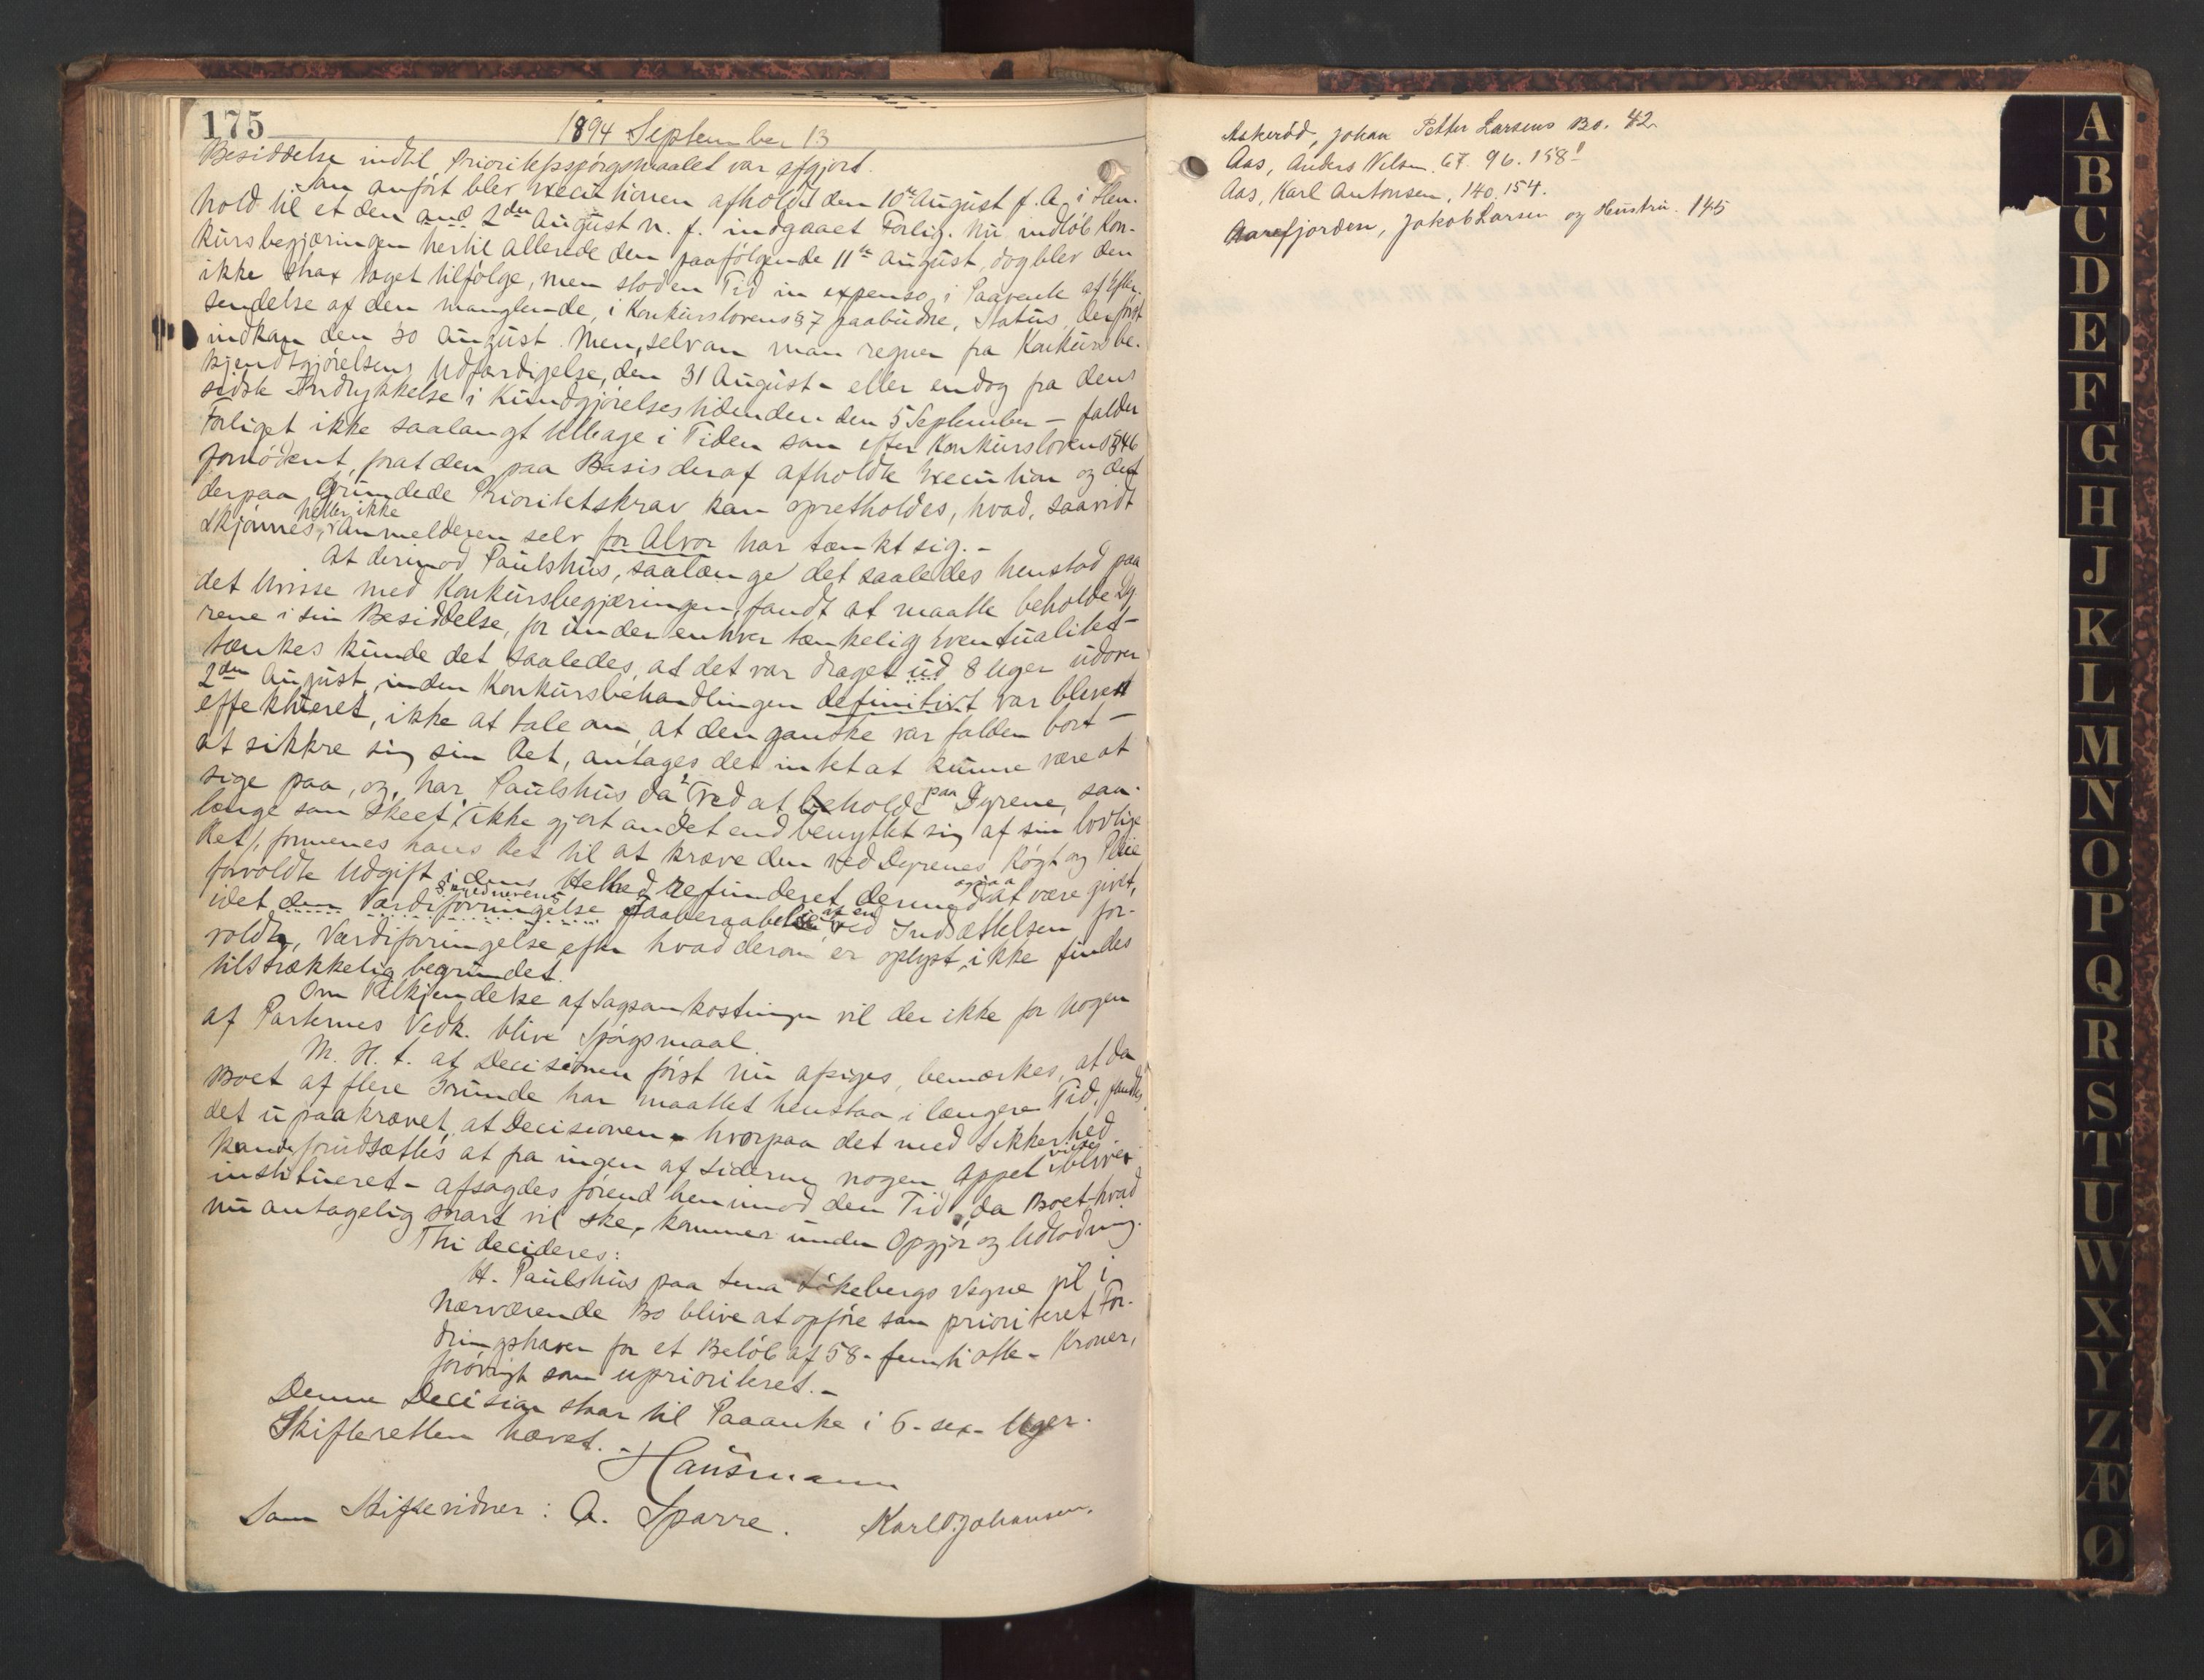 175
1894 September 13
Besiddelse indtil Prioritetsspørgsmaalet var afgjort.
Som anført blev Executionen afholdt den 10de August f. A. i Hen-
hold til et den 2den August n. f. indgaaet Forlig. Nu indløb Kon-
kursbegjæringen hertil allerede den paafølgende 11te August, dog blev den
ikke strax taget tilfølge, men stod en Tid in expenso, i Paavente af Efter-
sendelse af den manglende, i Konkurslovens § 7 paabudne, Status, der først
indkom den 30 August. Men, selv om man regner fra Konkursbe-
kjendtgjørelsens Udfærdigelse, den 31 August - eller endog fra dens
sidste Indrykkelse i Kundgjørelsestidenden den 5 September - falder
Forliget ikke saalangt tilbage i Tiden som efter Konkurslovens § 46
fornødent, forat den paa Basis deraf afholdte Execution og det
derpaa grundede Prioritetskrav kan opretholdes, hvad, saavidt
skjønnes, heller ikke Anmelderen selv for Alvor har tænkt sig. -
At derimod Paulshus, saalænge det saaledes henstod paa
det uvisse med Konkursbegjæringen, fandt at maatte beholde Dy-
rene i sin Besiddelse, for under enhver tænkelig Eventualitet -
tænkes kunde det saaledes, at det var draget ud 8 Uger udover
2den August, inden Konkursbehandlingen definitivt var blevet
effektueret, ikke at tale om, at den ganske var falden bort -
at sikkre sig sin Ret, antages det intet at kunne være at
sige paa, og, har Paulshus da ved at beholde paa Dyrene, saa-
længe som skeet, ikke gjort andet end benyttet sig af sin lovlige
Ret, formenes hans Ret til at kræve den ved Dyrenes Røgt og Pleie
forvoldte Udgift i dens Helhed refunderet dermed ogsaa at være givet,
idet den Værdiforringelse Paaberaabelse af en ved Indsættelsen for-
voldt, Værdiforringelse efter hvad derom er oplyst, ikke findes
tilstrækkelig begrundet.
Om Tilkjendelse af Sagsomkostninger vil der ikke for nogen
af Parternes Vedk. blive Spørgsmaal.
M. H. t. at Decisionen først nu afsiges, bemærkes, at da
Boet af flere Grunde har maattet henstaa i længere Tid, fandtes
det upaakrævet, at Decisionen - hvorpaa det med Sikkerhed
kunde forudsættes at fra ingen af Siderne nogen Appel vilde blive
institueret - afsagdes førend henimod den Tid, da Boet, hvad
nu antagelig snart vil ske, kommer under Opgjør og Udlodning.
Thi decideres:
H. Paulshus paa Lena Løkebergs Vegne vil i
nærværende Bo blive at opføre som prioriteret For-
dringshaver for et Beløb af 58 - femti otte - Kroner,
forøvrigt som uprioriteret. -
Denne Decision staar til Paaanke i 6 - sex - Uger.
Skifteretten hævet. -
Hausmann
Som Skiftevidner: A. Sparre. Karl O. Johansen.
Askerød, Johan Petter Larsens Bo. 42
Aas, Anders Nilsen. 67. 96. 158!
Aas, Karl Antonsen, 140. 154.
Aarefjorden, Jakob Larsen og Hustru. 145
A
B
C
D
E
F
G
H
J
K
L
M
N
O
P
Q
R
S
T
U
W
X
Y
Z
Æ
Ø